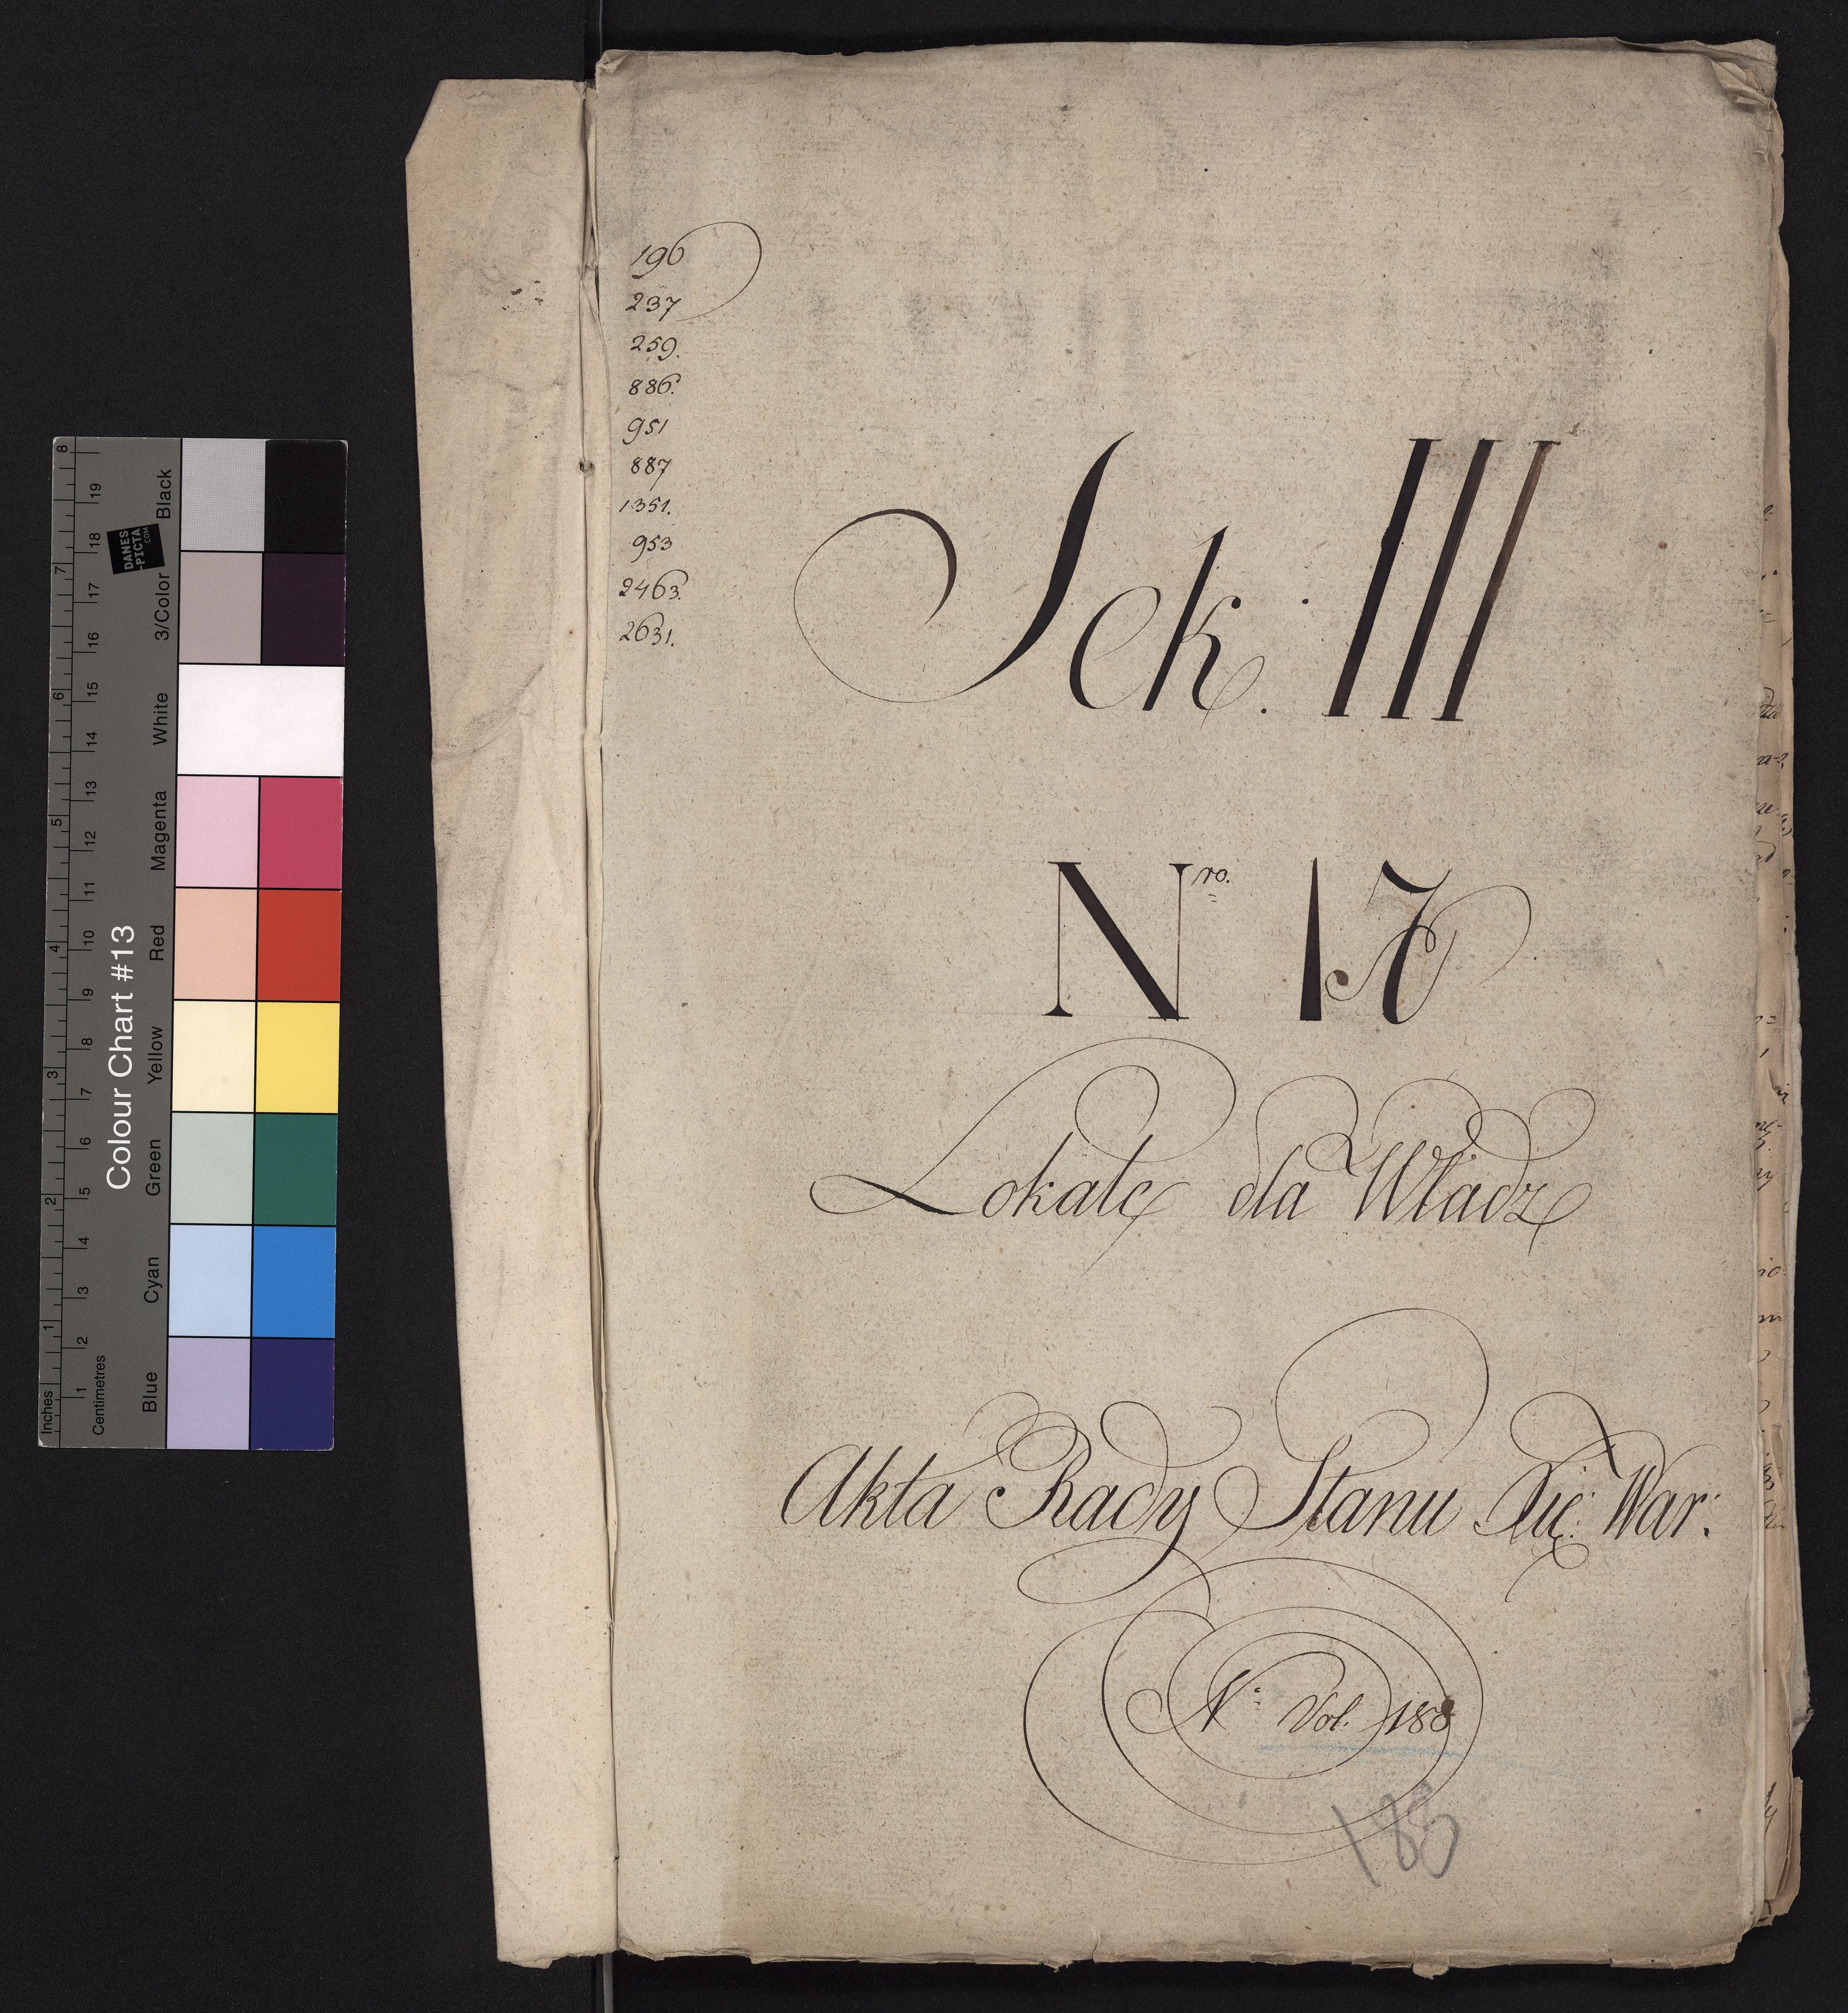 196
237
259.
886.
951
887
1351.
953
2463.
2631.
Sek. III
Nro. 15
Lokale dla Władz
Akta Rady Stanu Xię: War:
N: Vol. 188
188
Colour Chart #13
Inches
Centimetres
Blue
Cyan
Green
Yellow
Red
Magenta
White
3/Color
Black
DANES
-PICTA
.COM
1 2 3 4 5 6 7 8
1 2 3 4 5 6 7 8 9 10 11 12 13 14 15 16 17 18 19